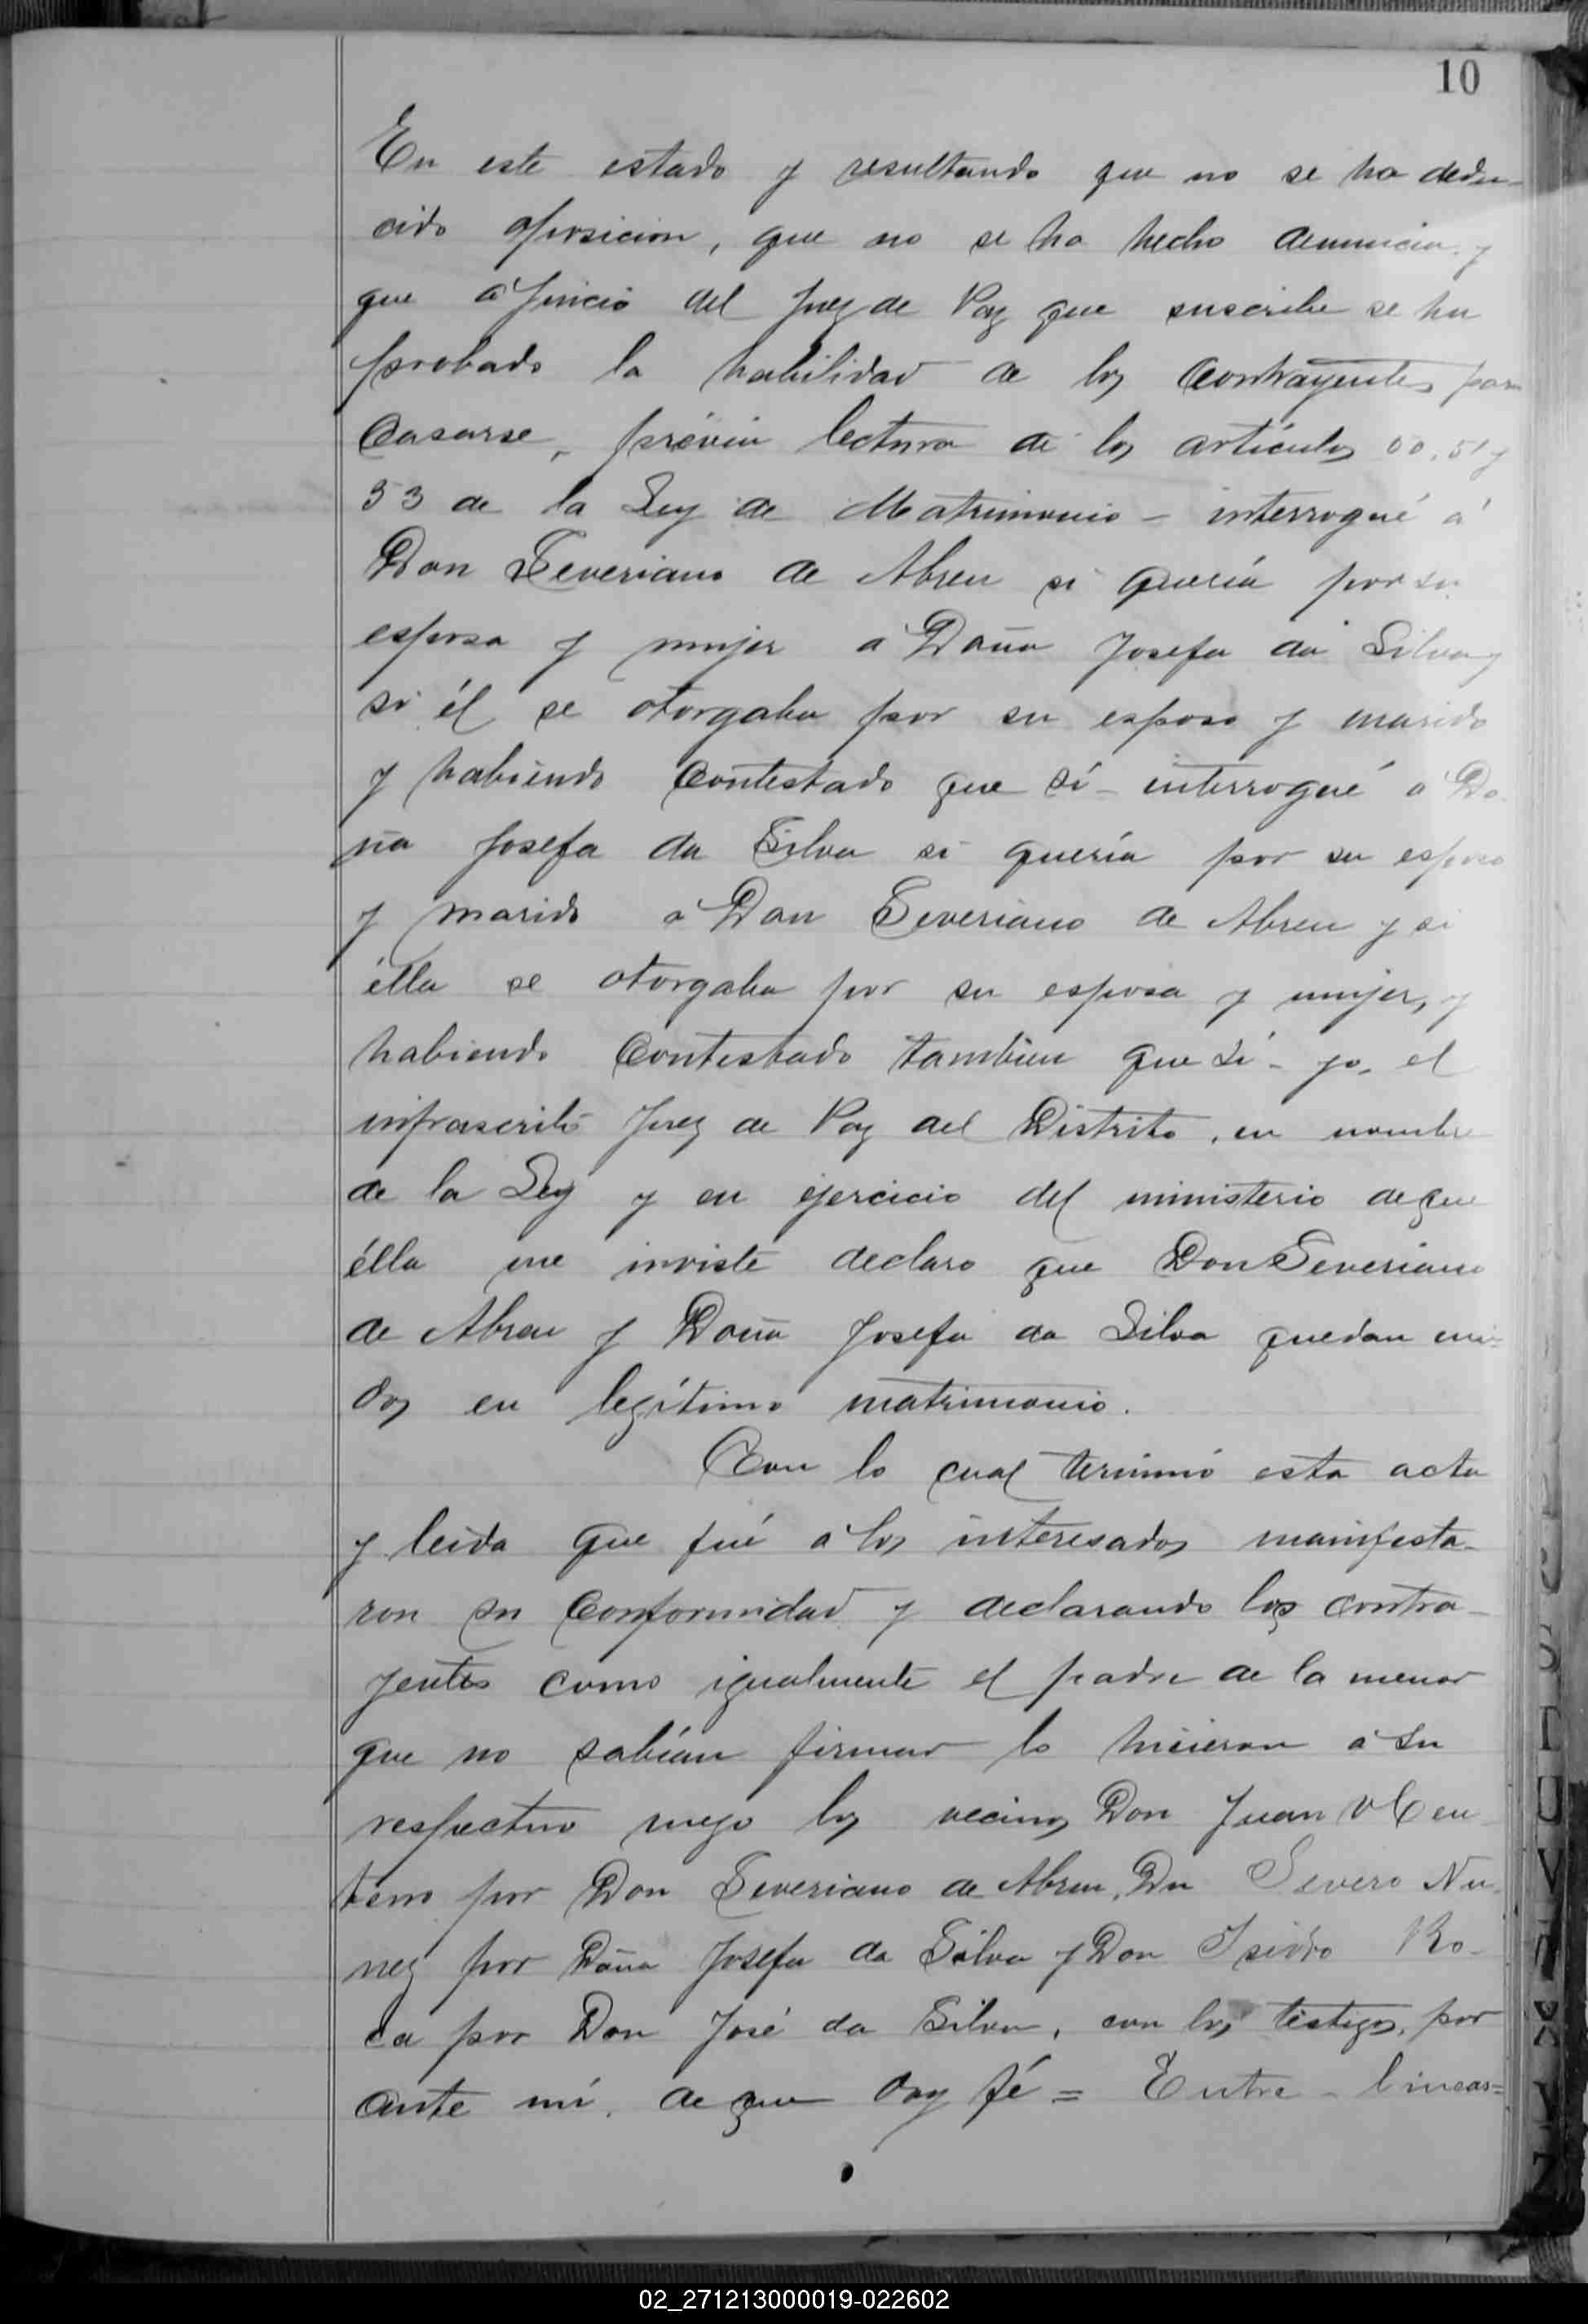 10
En este estado y resultando que no se ha dedu-
cido oposicion, que no se ha hecho denuncia y
que á juicio del Juez de Paz que suscribe se ha
probado la habilidad de los contrayentes para
casarse, prévia lectura de los artículos 50, 51 y
53 de la Ley de Matrimonio - interrogué á
Don Severiano de Abreu si quería por su
esposa y mujer a Doña Josefa da Silva y
si él se otorgaba por su esposo y marido
y habiendo contestado que sí - interrogué á Do-
ña Josefa da Silva si quería por su esposo
y marido á Don Severiano de Abreu y si
élla se otorgaba por su esposa y mujer, y
habiendo contestado tambien que sí - yo, el
infrascrito Juez de Paz del Distrito, en nombre
de la Ley y en ejercicio del ministerio de que
élla me inviste declaro que Don Severiano
de Abreu y Doña Josefa da Silva quedan uni-
dos en legítimo matrimonio.
Con lo cual terminó esta acta
y leida que fué á los interesados manifesta-
ron su conformidad y declarando los contra-
yentes como igualmente el padre de la menor
que no sabían firmar lo hicieron á su
respectivo ruego los vecinos Don Juan
por Don Severiano de Abreu, Dn Severo Nu-
nez por Doña Josefa da Silva y Don Isidro Ro-
ca por Don José da Silva, con los testigos, por
ante mí, de que doy fé = Entre - lineas =
02_271213000019-022602